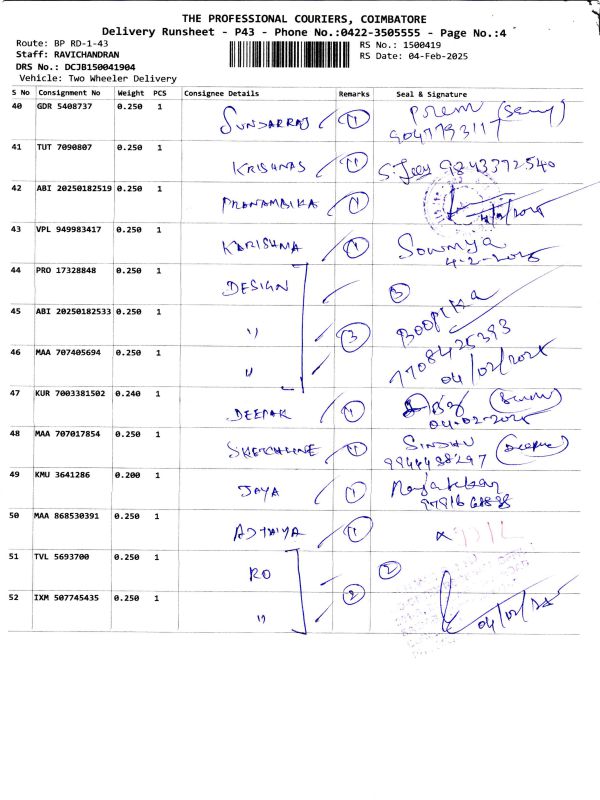 THE PROFESSIONAL COURIERS, COIMBATORE
Delivery Runsheet - P43 - Phone No.:0422-3505555 - Page No.:4
Route: BP RD-1-43
RS No.: 1500419
Staff: RAVICHANDRAN
RS Date: 04-Feb-2025
DRS No.: DCJB150041904
Vehicle: Two Wheeler Delivery
S No Consignment No Weight PCS Consignee Details Remarks Seal & Signature
40 GDR 5408737 0.250 1 SUNDARRAJ 1 Prem
9047793117
41 TUT 7090807 0.250 1 KRISHNAS 1 9843372540
42 ABI 20250182519 0.250 1 PRANAMBIKA 1
43 VPL 949983417 0.250 1 KARISHMA 1 Sowmya
4-2-2025
44 PRO 17328848 0.250 1 DESIGN 3
45 ABI 20250182533 0.250 1 " 3 BOOPIKA
7708425393
46 MAA 707405694 0.250 1 "
04/02/2025
47 KUR 7003381502 0.240 1 DEEPAK 1
04-02-2025
48 MAA 707017854 0.250 1 SKETCHLINE 1 SINDHU
9944498297
49 KMU 3641286 0.200 1 JAYA 1
50 MAA 868530391 0.250 1 1
51 TVL 5693700 0.250 1 RO 2
52 IXM 507745435 0.250 1 " 2
04/02/25